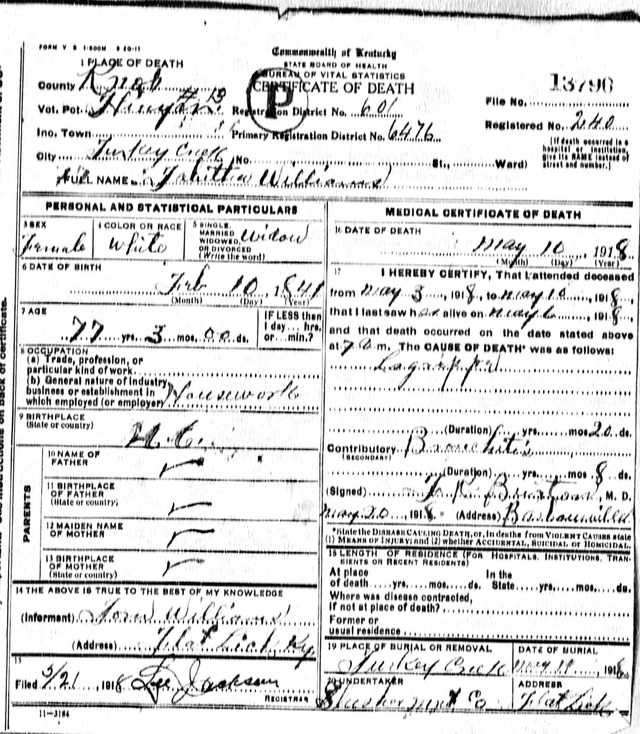 FORM V S 1-500M 9 20-11
Commonwealth of Kentucky
STATE BOARD OF HEALTH
BUREAU OF VITAL STATISTICS
CERTIFICATE OF DEATH
1 PLACE OF DEATH
County Knox
Vot. Pct.
Registration District No. 601
13790
File No.
Inc. Town
Primary Registration District No. 6476
Registered No. 240
City Turkey Creek (No. St., Ward)
[If death occurred in a hospital or institution, give its NAME instead of street and number.]
P
FULL NAME Tabitha Williams
PERSONAL AND STATISTICAL PARTICULARS
3 SEX Female
4 COLOR OR RACE White
5 SINGLE, MARRIED WIDOWED, OR DIVORCED (Write the word) Widow
6 DATE OF BIRTH
Feb 10, 1841
(Month) (Day) (Year)
7 AGE
77 yrs. 3 mos. 00 ds.
IF LESS than 1 day... hrs. or min.?
8 OCCUPATION
(a) Trade, profession, or particular kind of work
(b) General nature of industry business or establishment in which employed (or employer) Housework
9 BIRTHPLACE
(State or country) N.C.
PARENTS
10 NAME OF FATHER
11 BIRTHPLACE OF FATHER
(State or country)
12 MAIDEN NAME OF MOTHER
13 BIRTHPLACE OF MOTHER
(State or country)
14 THE ABOVE IS TRUE TO THE BEST OF MY KNOWLEDGE
(Informant) Williams
(Address) Flat Lick Ky
15
Filed 5/21, 1918 Lee Jackson
REGISTRAR
11-3184
MEDICAL CERTIFICATE OF DEATH
16 DATE OF DEATH
May 10, 1918
(Month) (Day) (Year)
17 I HEREBY CERTIFY, That I attended deceased
from May 3, 1918, to May 10, 1918,
that I last saw her alive on May 6, 1918,
and that death occurred on the date stated above
at 7 a m. The CAUSE OF DEATH* was as follows:
Lagrippe
(Duration) yrs. mos. 20 ds.
Contributory Bronchitis
(SECONDARY)
(Duration) yrs. mos. 8 ds.
(Signed) M. D.
May 20, 1918 (Address) Barbourville
*State the DISEASE CAUSING DEATH, or, in deaths from VIOLENT CAUSES state (1) MEANS OF INJURY; and (2) whether ACCIDENTAL, SUICIDAL or HOMICIDAL.
18 LENGTH OF RESIDENCE (FOR HOSPITALS, INSTITUTIONS, TRANSIENTS OR RECENT RESIDENTS)
At place of death yrs. mos. ds. In the State yrs. mos. ds.
Where was disease contracted, if not at place of death?
Former or usual residence
19 PLACE OF BURIAL OR REMOVAL Turkey Creek
DATE OF BURIAL May 11, 1918
20 UNDERTAKER
ADDRESS Flat Lick